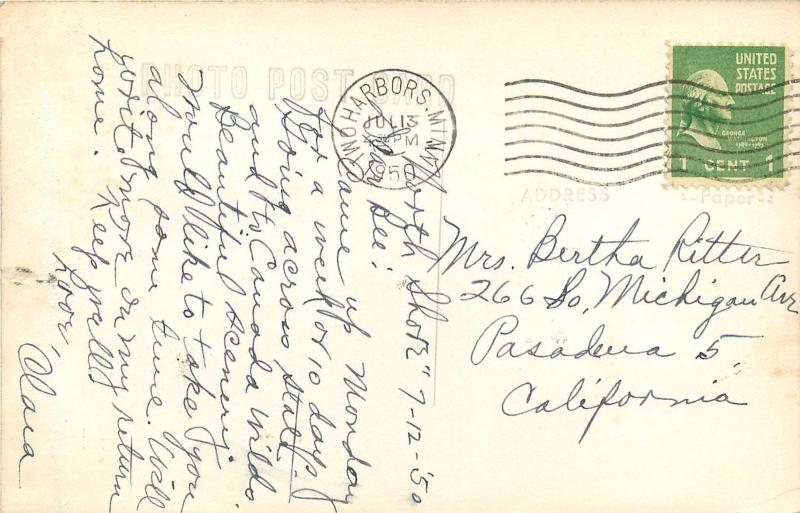 PHOTO POST CARD
TWO HARBORS, MINN.
JUL 13
PM
1950
UNITED
STATES
POSTAGE
GEORGE
WASHINGTON
1 CENT 1
ADDRESS
Paper
"North Shore" 7-12-'50
Came up Monday
for a week or 10 days.
Going across state
and to Canada wilds.
Beautiful scenery.
Would like to take you
along some time. Will
write more on my return
home. Keep well,
Love,
Clara
Mrs. Bertha Ritter
266 So. Michigan Ave
Pasadena 5,
California